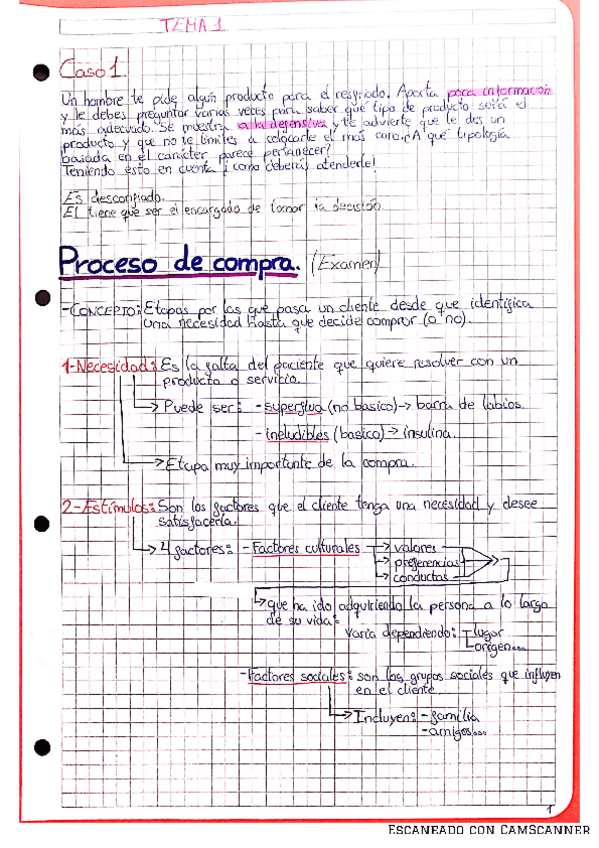 TEMA 1
Caso 1.
Un hombre te pide algún producto para el resfriado. Aporta poca información
y le debes preguntar varias veces para saber qué tipo de producto será el
más adecuado. Se muestra a la defensiva y te advierte que le des un
producto y que no te limites a colocarle el más caro. ¿A qué tipología
basada en el carácter parece pertenecer?
Teniendo esto en cuenta ¿como deberás atenderle?
Es desconfiado.
El tiene que ser el encargado de tomar la decisión
Proceso de compra. (Examen)
-CONCEPTO: Etapas por las que pasa un cliente desde que identifica
una necesidad hasta que decide comprar (o no).
1-Necesidad: Es la falta del paciente que quiere resolver con un
producto o servicio.
Puede ser: - superflua (no basico) → barra de labios.
- ineludibles (basico) → insulina.
Etapa muy importante de la compra.
2-Estímulos: Son los factores que el cliente tenga una necesidad y desee
satisfacerla.
4 factores: - Factores culturales → valores
→ preferencias
→ conductas
que ha ido adquiriendo la persona a lo largo
de su vida:
Varia dependiendo: lugar
origen...
- Factores sociales: son los grupos sociales que influyen
en el cliente
Incluyen: - familia
- amigos...
1
ESCANEADO CON CAMSCANNER